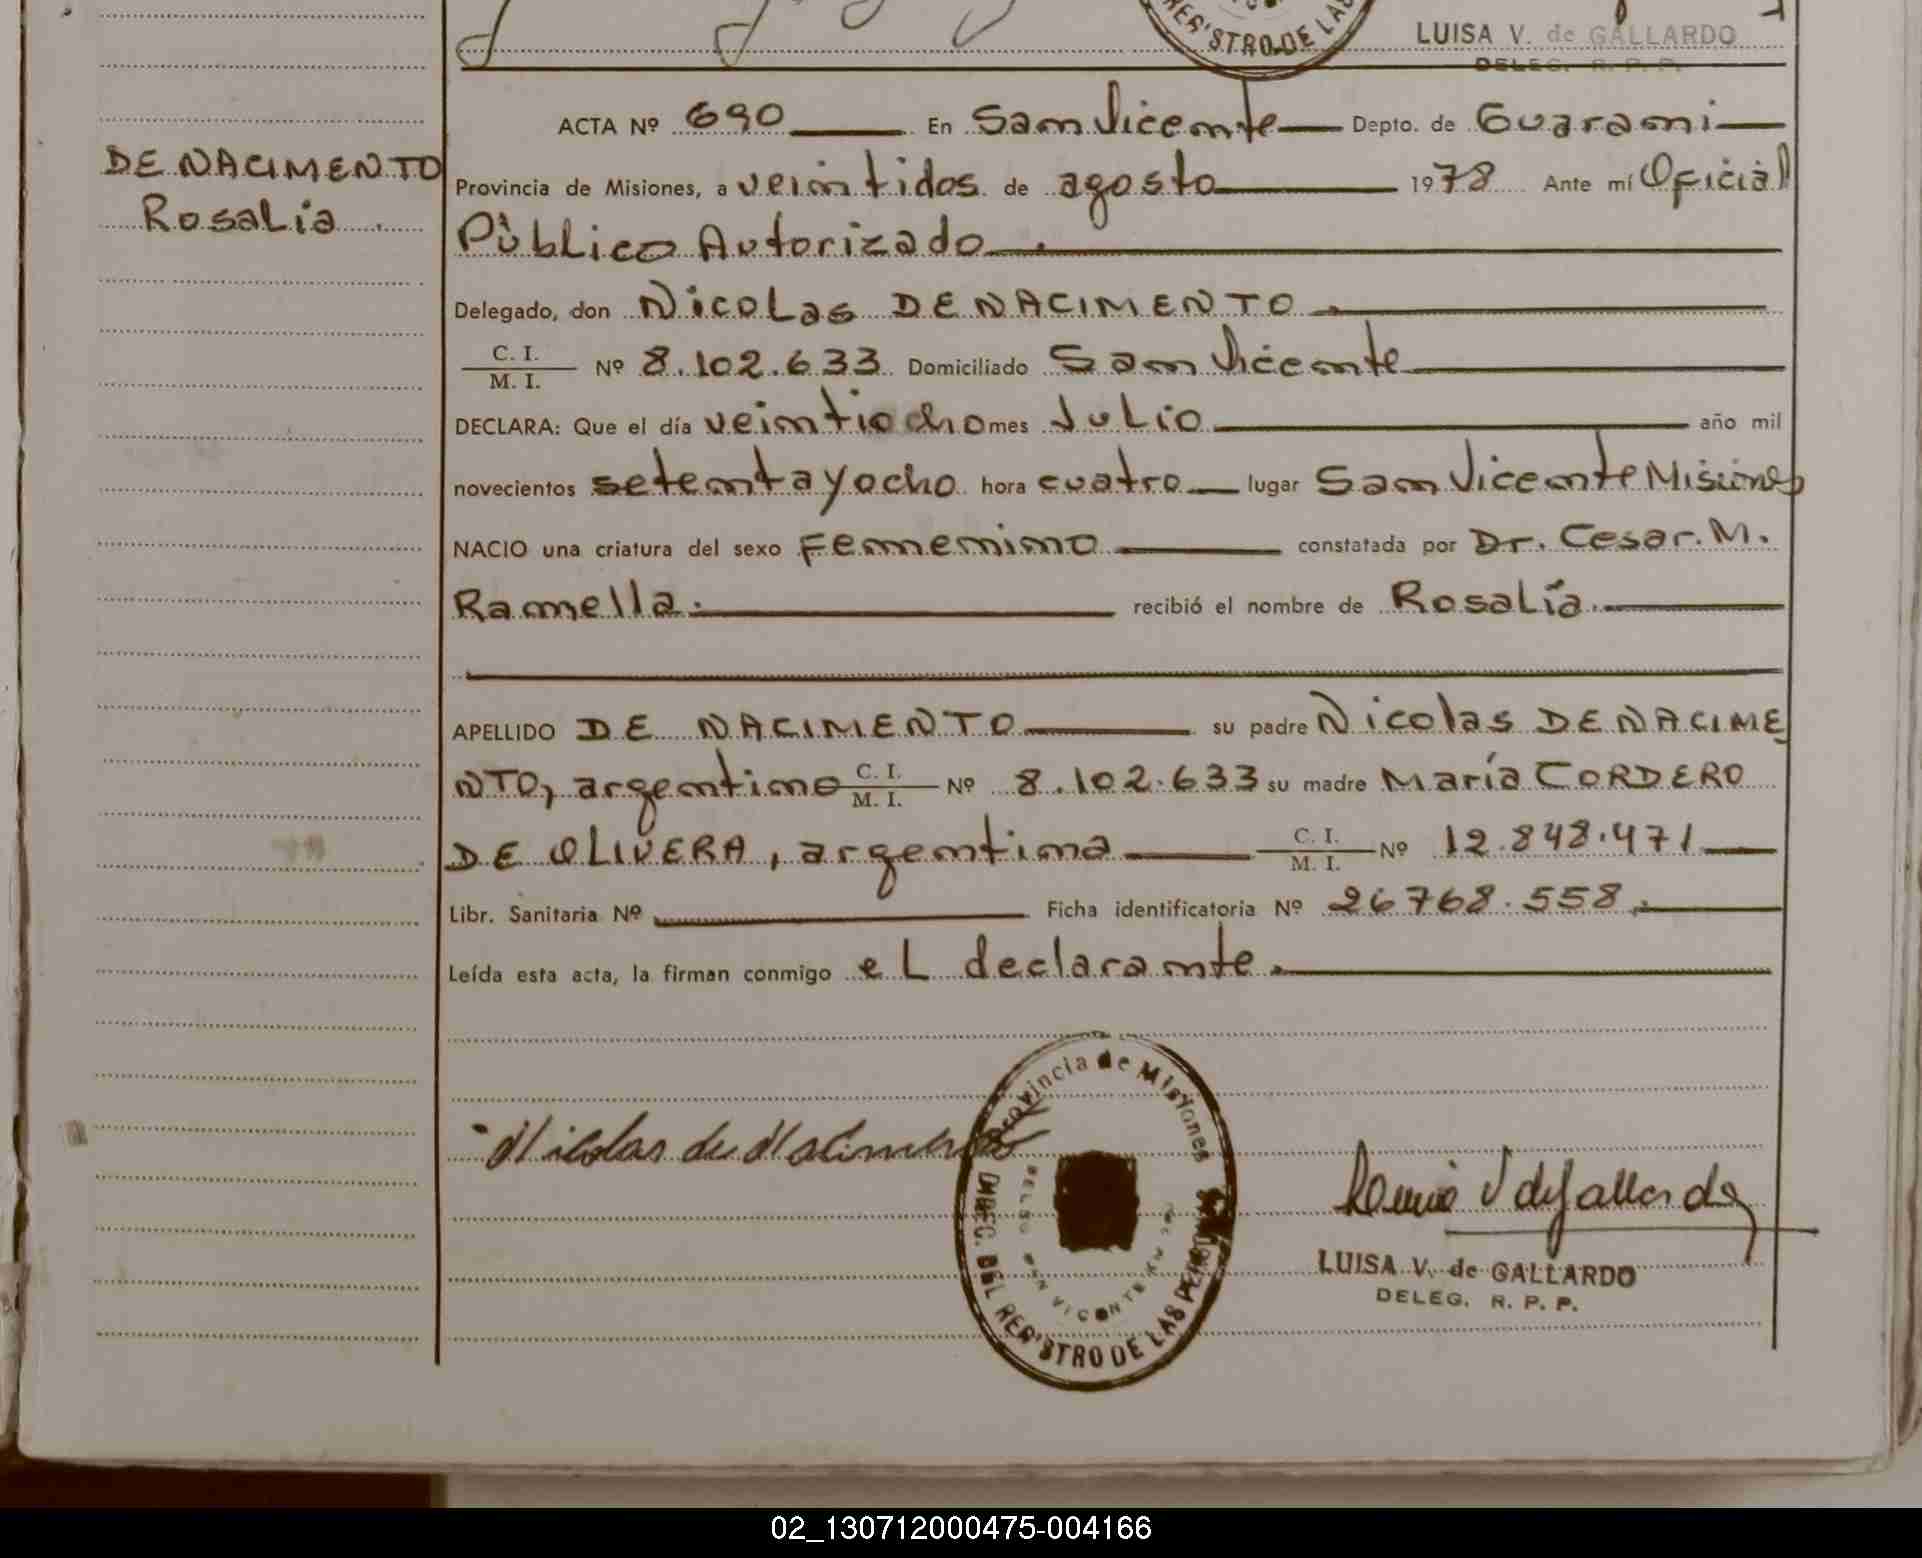 REG'STRO DE LAS
LUISA V. de GALLARDO
DELEG. R. P. P.
DE NACIMENTO
Rosalía
ACTA Nº 690 En San Vicente Depto. de Guarani
Provincia de Misiones, a veintidos de agosto 1978 Ante mí Oficial
Público Autorizado
Delegado, don Nicolas DE NACIMENTO
C. I. / M. I. Nº 8.102.633 Domiciliado San Vicente
DECLARA: Que el día veintiocho mes Julio año mil
novecientos setenta y ocho hora cuatro lugar San Vicente Misiones
NACIO una criatura del sexo femenino constatada por Dr. Cesar. M.
Ramella. recibió el nombre de Rosalía.
APELLIDO DE NACIMENTO su padre Nicolas DE NACIME
NTO, argentino C. I. / M. I. Nº 8.102.633 su madre María CORDERO
DE OLIVERA, argentina C. I. / M. I. Nº 12.848.471
Libr. Sanitaria Nº Ficha identificatoria Nº 26768.558.
Leída esta acta, la firman conmigo el declarante.
Provincia de Misiones
DIREC. DEL REG'STRO DE LAS PERSONAS
SAN VICENTE
Nicolas de Nacimento
Luisa V de Gallardo
LUISA V. de GALLARDO
DELEG. R. P. P.
02_130712000475-004166